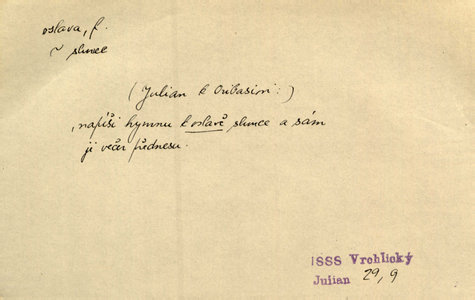 oslava, f.
~ slunce
(Julian k Oribasiovi:)
, napíši hymnu k oslavě slunce a sám
ji večer přednesu.
ISSS Vrchlický
Julian 29, 9